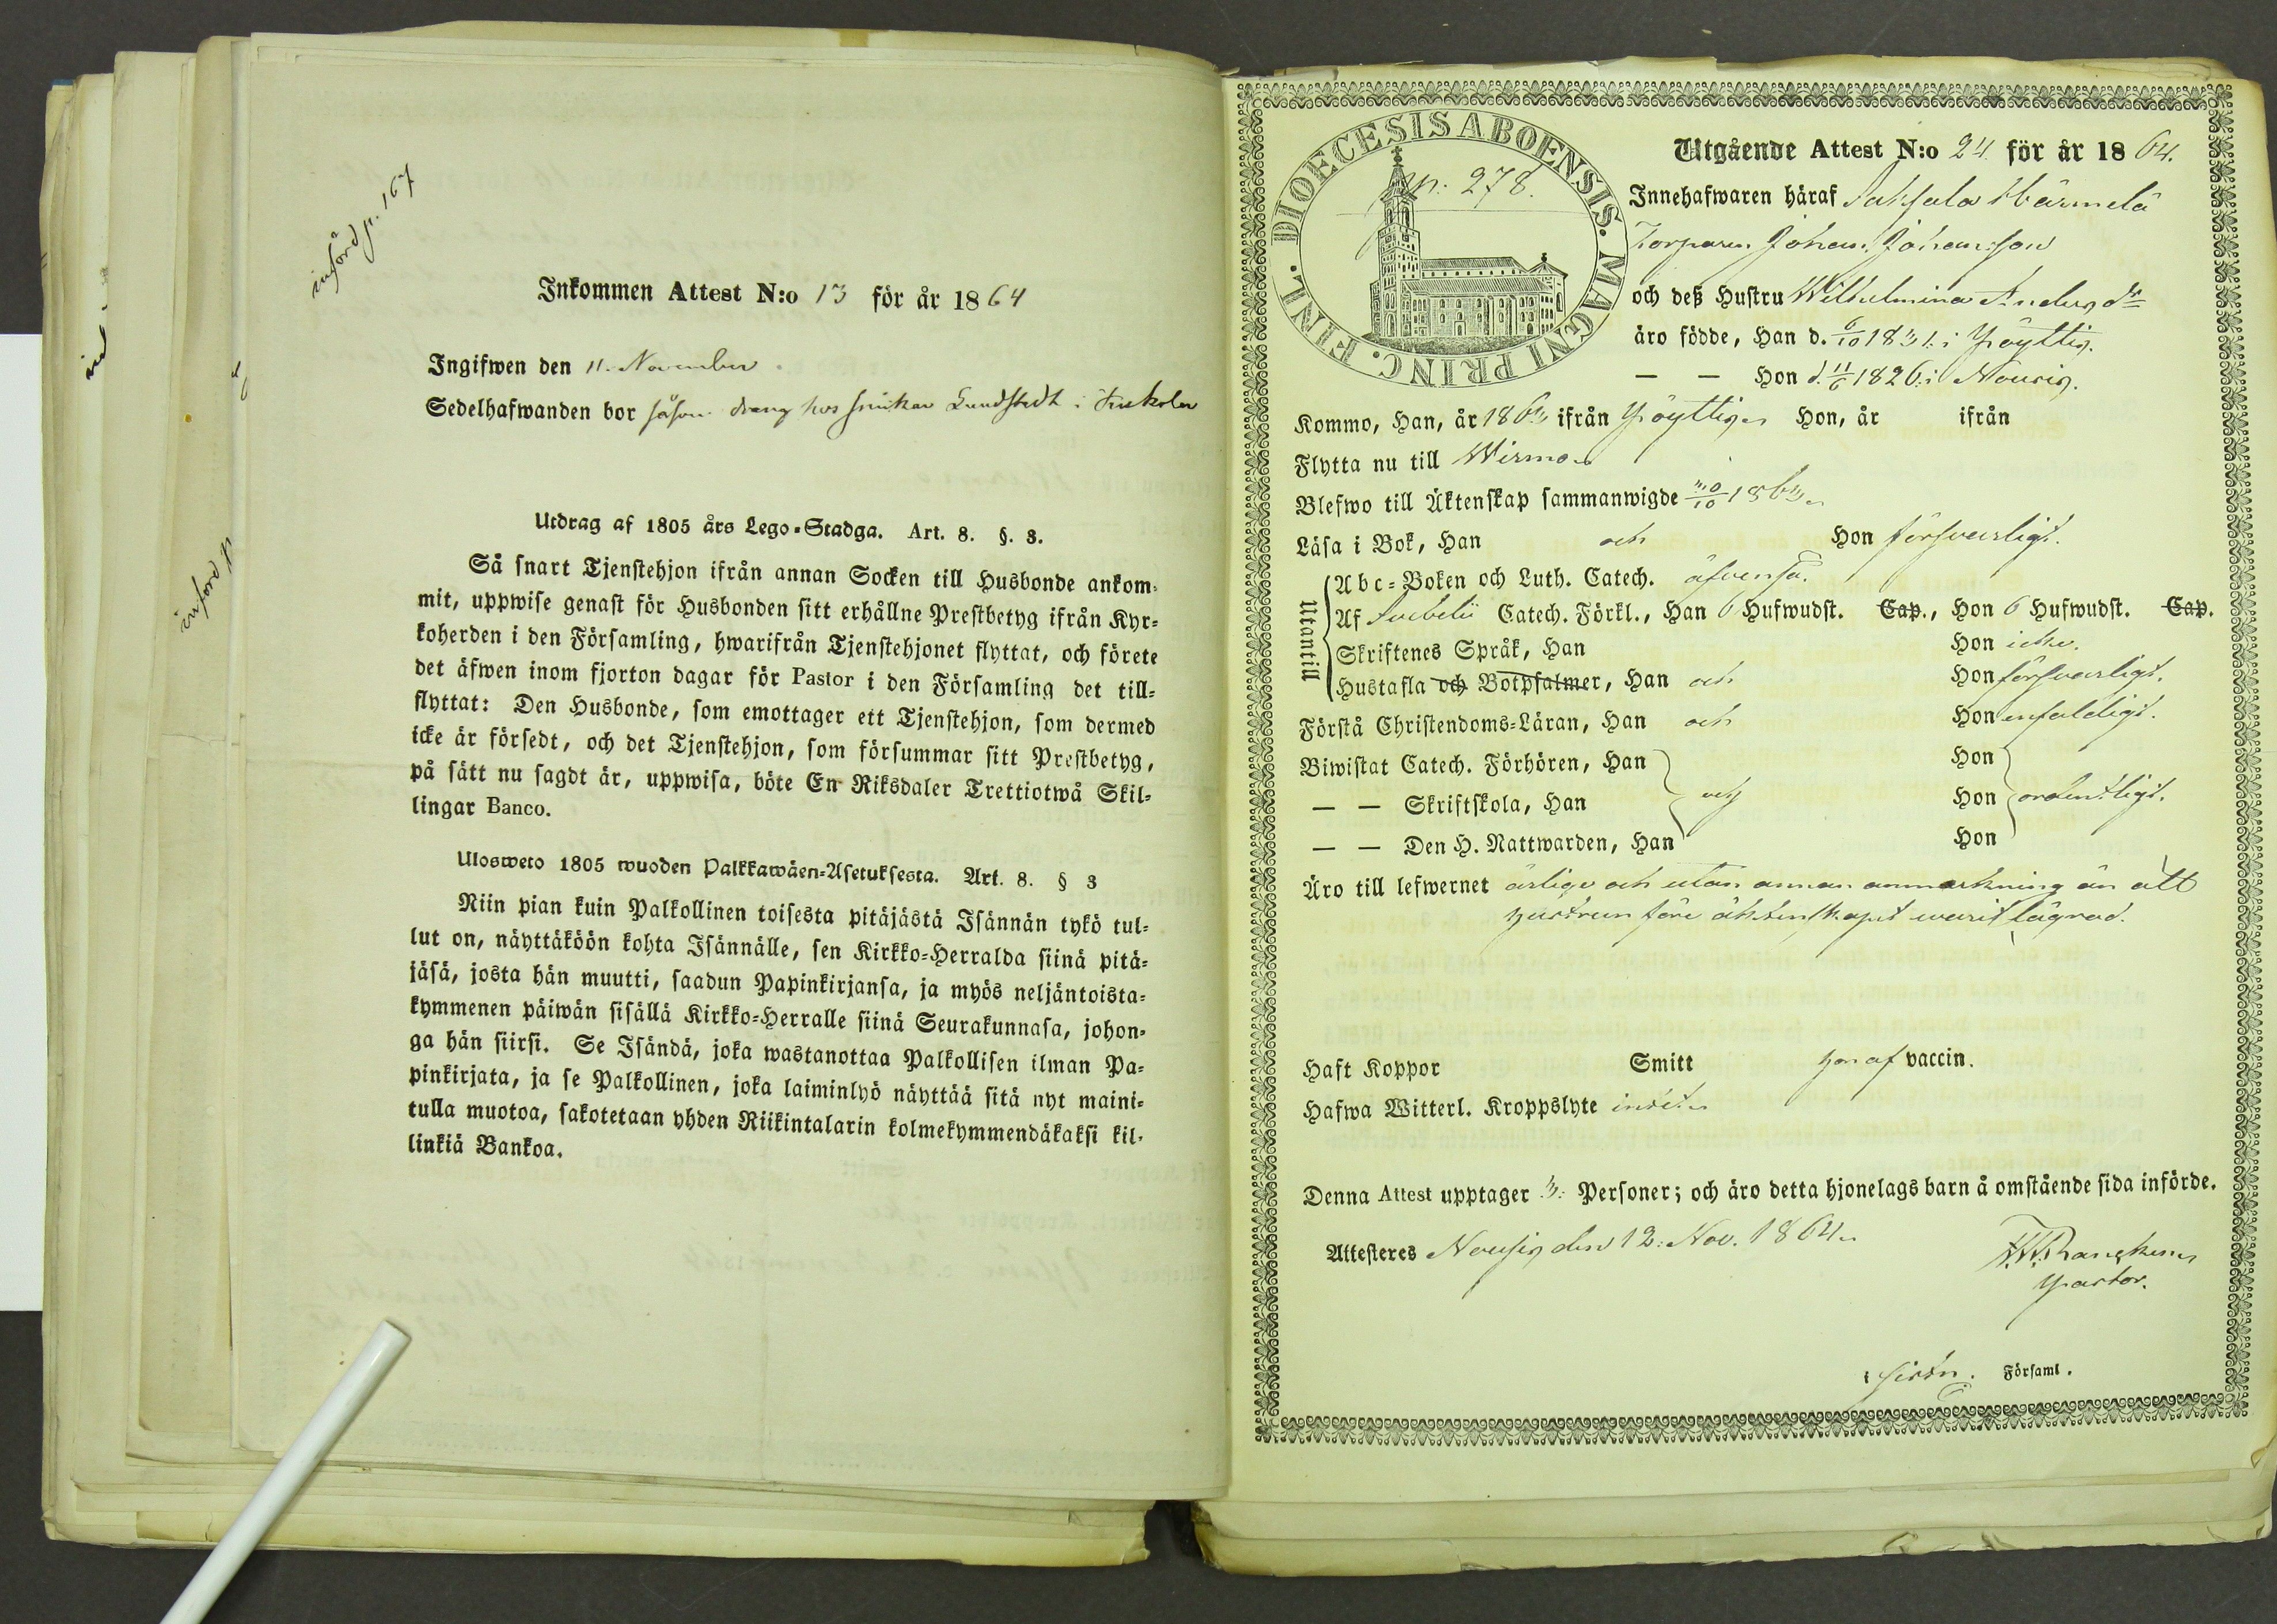 införd p. 167
Inkommen Attest N:o 13 för år 1864
Ingifwen den 11. November
Sedelhafwanden bor såsom dreng hos Lundstedt i
Utdrag af 1805 års Lego-Stadga. Art. 8. §. 3.
Så snart Tjenstehjon ifrån annan Socken till Husbonde ankom-
mit, uppwise genast för Husbonden sitt erhållne Prestbetyg ifrån Kyr-
koherden i den Församling, hwarifrån Tjenstehjonet flyttat, och förete
det äfwen inom fjorton dagar för Pastor i den Församling det till-
flyttat: Den Husbonde, som emottager ett Tjenstehjon, som dermed
icke är försedt, och det Tjenstehjon, som försummar sitt Prestbetyg,
på sätt nu sagdt är, uppwisa, böte En Riksdaler Trettiotwå Skil-
lingar Banco.
Ulosweto 1805 wuoden Palkkawäen-Asetuksesta. Art. 8. § 3
Niin pian kuin Palkollinen toisesta pitäjästä Isännän tykö tul-
lut on, näyttäköön kohta Isännälle, sen Kirkko-Herralda siinä pitä-
jäsä, josta hän muutti, saadun Papinkirjansa, ja myös neljäntoista-
kymmenen päiwän sisällä Kirkko-Herralle siinä Seurakunnasa, johon-
ga hän siirsi. Se Isändä, joka wastanottaa Palkollisen ilman Pa-
pinkirjata, ja se Palkollinen, joka laiminlyö näyttää sitä nyt maini-
tulla muotoa, sakotetaan yhden Riikintalarin kolmekymmendäkaksi kil-
linkiä Bankoa.
införd p
DIOECESIS ABOENSIS. MAGNI PRINC. FINL.
p: 278.
Utgående Attest N:o 24 för år 1864.
Innehafwaren häraf Härmelä
Torparen Johan Johansson
och deß Hustru Wilhelmina Andersdr
äro födde, Han d. 6/10 1831 i Pöyttis.
— — Hon d. 11/6 1826 i Nousis.
Kommo, Han, år 1863 ifrån Pöyttis Hon, år ifrån
Flytta nu till Wirmo
Blefwo till Äktenskap sammanwigde 30/10 1863
Läsa i Bok, Han och Hon försvarligt.
Utantill
Abc-Boken och Luth. Catech. äfvenså.
Af Svebelii Catech. Förkl., Han 6 Hufwudst. Cap., Hon 6 Hufwudst. Cap.
Skriftenes Språk, Han Hon icke.
Hustafla och Botpsalmer, Han och Hon försvarligt.
Förstå Christendoms-Läran, Han och Hon enfaldigt.
Biwistat Catech. Förhören, Han Hon
— — Skriftskola, Han och Hon ordentligt.
— — Den H. Nattwarden, Han Hon
Äro till lefwernet ärlige och utan annan anmärkning än att
hustrun före äktenskapet warit lägrad.
Haft Koppor Smitt hon af vaccin.
Hafwa Witterl. Kroppslyte intet
Denna Attest upptager 3: Personer; och äro detta hjonelags barn å omstående sida införde.
Attesteres Nousis den 12: Nov. 1864
Pastor.
Församl.